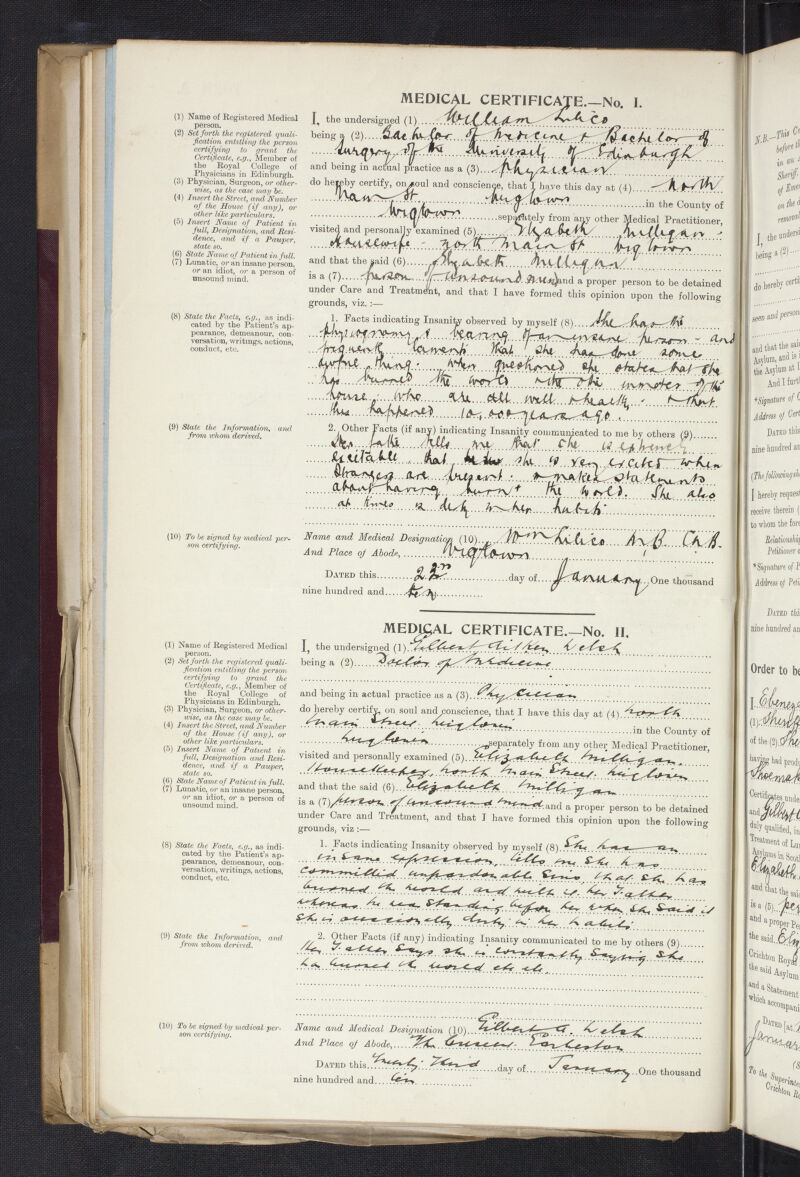 MEDICAL CERTIFICATE.—No. I.
(1) Name of Registered Medical person.
(2) Set forth the registered quali-
fication entitling the person
certifying to grant the
Certificate, e.g., Member of
the Royal College of
Physicians in Edinburgh.
(3) Physician, Surgeon, or other-
wise, as the case may be.
(4) Insert the Street, and Number
of the House (if any), or
other like particulars.
(5) Insert Name of Patient in
full, Designation, and Resi-
dence, and if a Pauper,
state so.
(6) State Name of Patient in full.
(7) Lunatic, or an insane person,
or an idiot, or a person of
unsound mind.
I, the undersigned (1) William Lilico
being a (2) Bachelor of Medicine & Bachelor of
Surgery of the University of Edinburgh
and being in actual practice as a (3) Physician
do hereby certify, on soul and conscience, that I have this day at (4) North
Main St Wigtown in the County of
Wigtown separately from any other Medical Practitioner,
visited and personally examined (5) Elizabeth Milligan -
Housewife - North Main St Wigtown
and that the said (6) Elizabeth Milligan
is a (7) person of unsound mind and a proper person to be detained
under Care and Treatment, and that I have formed this opinion upon the following
grounds, viz. :—
(8) State the Facts, e.g., as indi-
cated by the Patient's ap-
pearance, demeanour, con-
versation, writings, actions,
conduct, etc.
1. Facts indicating Insanity observed by myself (8) She has the
physiognomy & bearing of an insane person - and
frequently laments that she has done some
awful thing. When questioned she states that she
has burned the world & the inmates of the
house who are all well & healthy. & that
this happened 10,000 years ago.
(9) State the Information, and
from whom derived.
2. Other Facts (if any) indicating Insanity communicated to me by others (9)
Her father tells me that she is extremely
excitable that she is very excited when
Strangers are present. & makes statements
about having burnt the world. She also
at times is dirty in her habits
(10) To be signed by medical per-
son certifying.
Name and Medical Designation (10) Wm Lilico M.B. Ch.B.
And Place of Abode, Wigtown
DATED this 22nd day of January One thousand
nine hundred and ten
MEDICAL CERTIFICATE.—No. II.
(1) Name of Registered Medical
person.
(2) Set forth the registered quali-
fication entitling the person
certifying to grant the
Certificate, e.g., Member of
the Royal College of
Physicians in Edinburgh.
(3) Physician, Surgeon, or other-
wise, as the case may be.
(4) Insert the Street, and Number
of the House (if any), or
other like particulars.
(5) Insert Name of Patient in
full, Designation and Resi-
dence, and if a Pauper,
state so.
(6) State Name of Patient in full.
(7) Lunatic, or an insane person,
or an idiot, or a person of
unsound mind.
I, the undersigned (1) Gilbert Aitken Welsh
being a (2) Doctor of Medicine
and being in actual practice as a (3) Physician
do hereby certify, on soul and conscience, that I have this day at (4) North
Main Street Wigtown in the County of
Wigtown separately from any other Medical Practitioner,
visited and personally examined (5) Elizabeth Milligan.
Housekeeper, North Main Street, Wigtown
and that the said (6) Elizabeth Milligan
is a (7) person of unsound mind and a proper person to be detained
under Care and Treatment, and that I have formed this opinion upon the following
grounds, viz :—
(8) State the Facts, e.g., as indi-
cated by the Patient's ap-
pearance, demeanour, con-
versation, writings, actions,
conduct, etc.
1. Facts indicating Insanity observed by myself (8) She has an
insane expression, tells me she has
committed unpardonable sins, that she has
burned the world and with it her Father
whereas he was standing before her when she said it
She is occasionally dirty in her habits
(9) State the Information, and
from whom derived.
2. Other Facts (if any) indicating Insanity communicated to me by others (9)
Her Father says she is constantly saying she
has burned the world etc etc.
(10) To be signed by medical per-
son certifying.
Name and Medical Designation (10) Gilbert A. Welsh
And Place of Abode, The Crescent
DATED this twenty third day of January One thousand
nine hundred and ten
N.B.—This
I, the
being a (2)
do hereby
and that the
Asylum, and is
the Asylum at
And I
*Signature of
Address of
DATED
nine hundred
I hereby
receive therein
to whom the
Petitioner
*Signature of
Address of
DATED
nine hundred an
Order to
I,
(1)
of the (2)
having had
Certificates
and Gilbert
duly qualified, in
Treatment of
Asylums in
Elizabeth
and that the
is a (5)
and a proper
the said
Crichton
the said Asylum
and a Statement
which
DATED
To the
Crichton